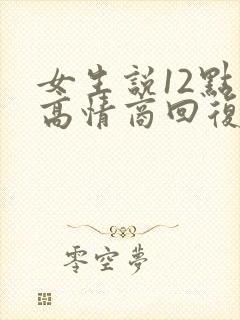 女生說12點
高情商回復
零空夢